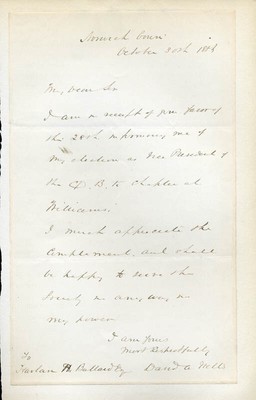 Norwich Conn
October 30th 18
My Dear Sir
I am in receipt of your favor of
the 28th informing me of
my election as Vice President of
the Φ. B. K. Chapter at
Williams.
I much appreciate the
compliment, and shall
be happy to serve the
Society in any way in
my power
I am yours
Most Respectfully
David A. Wells
To